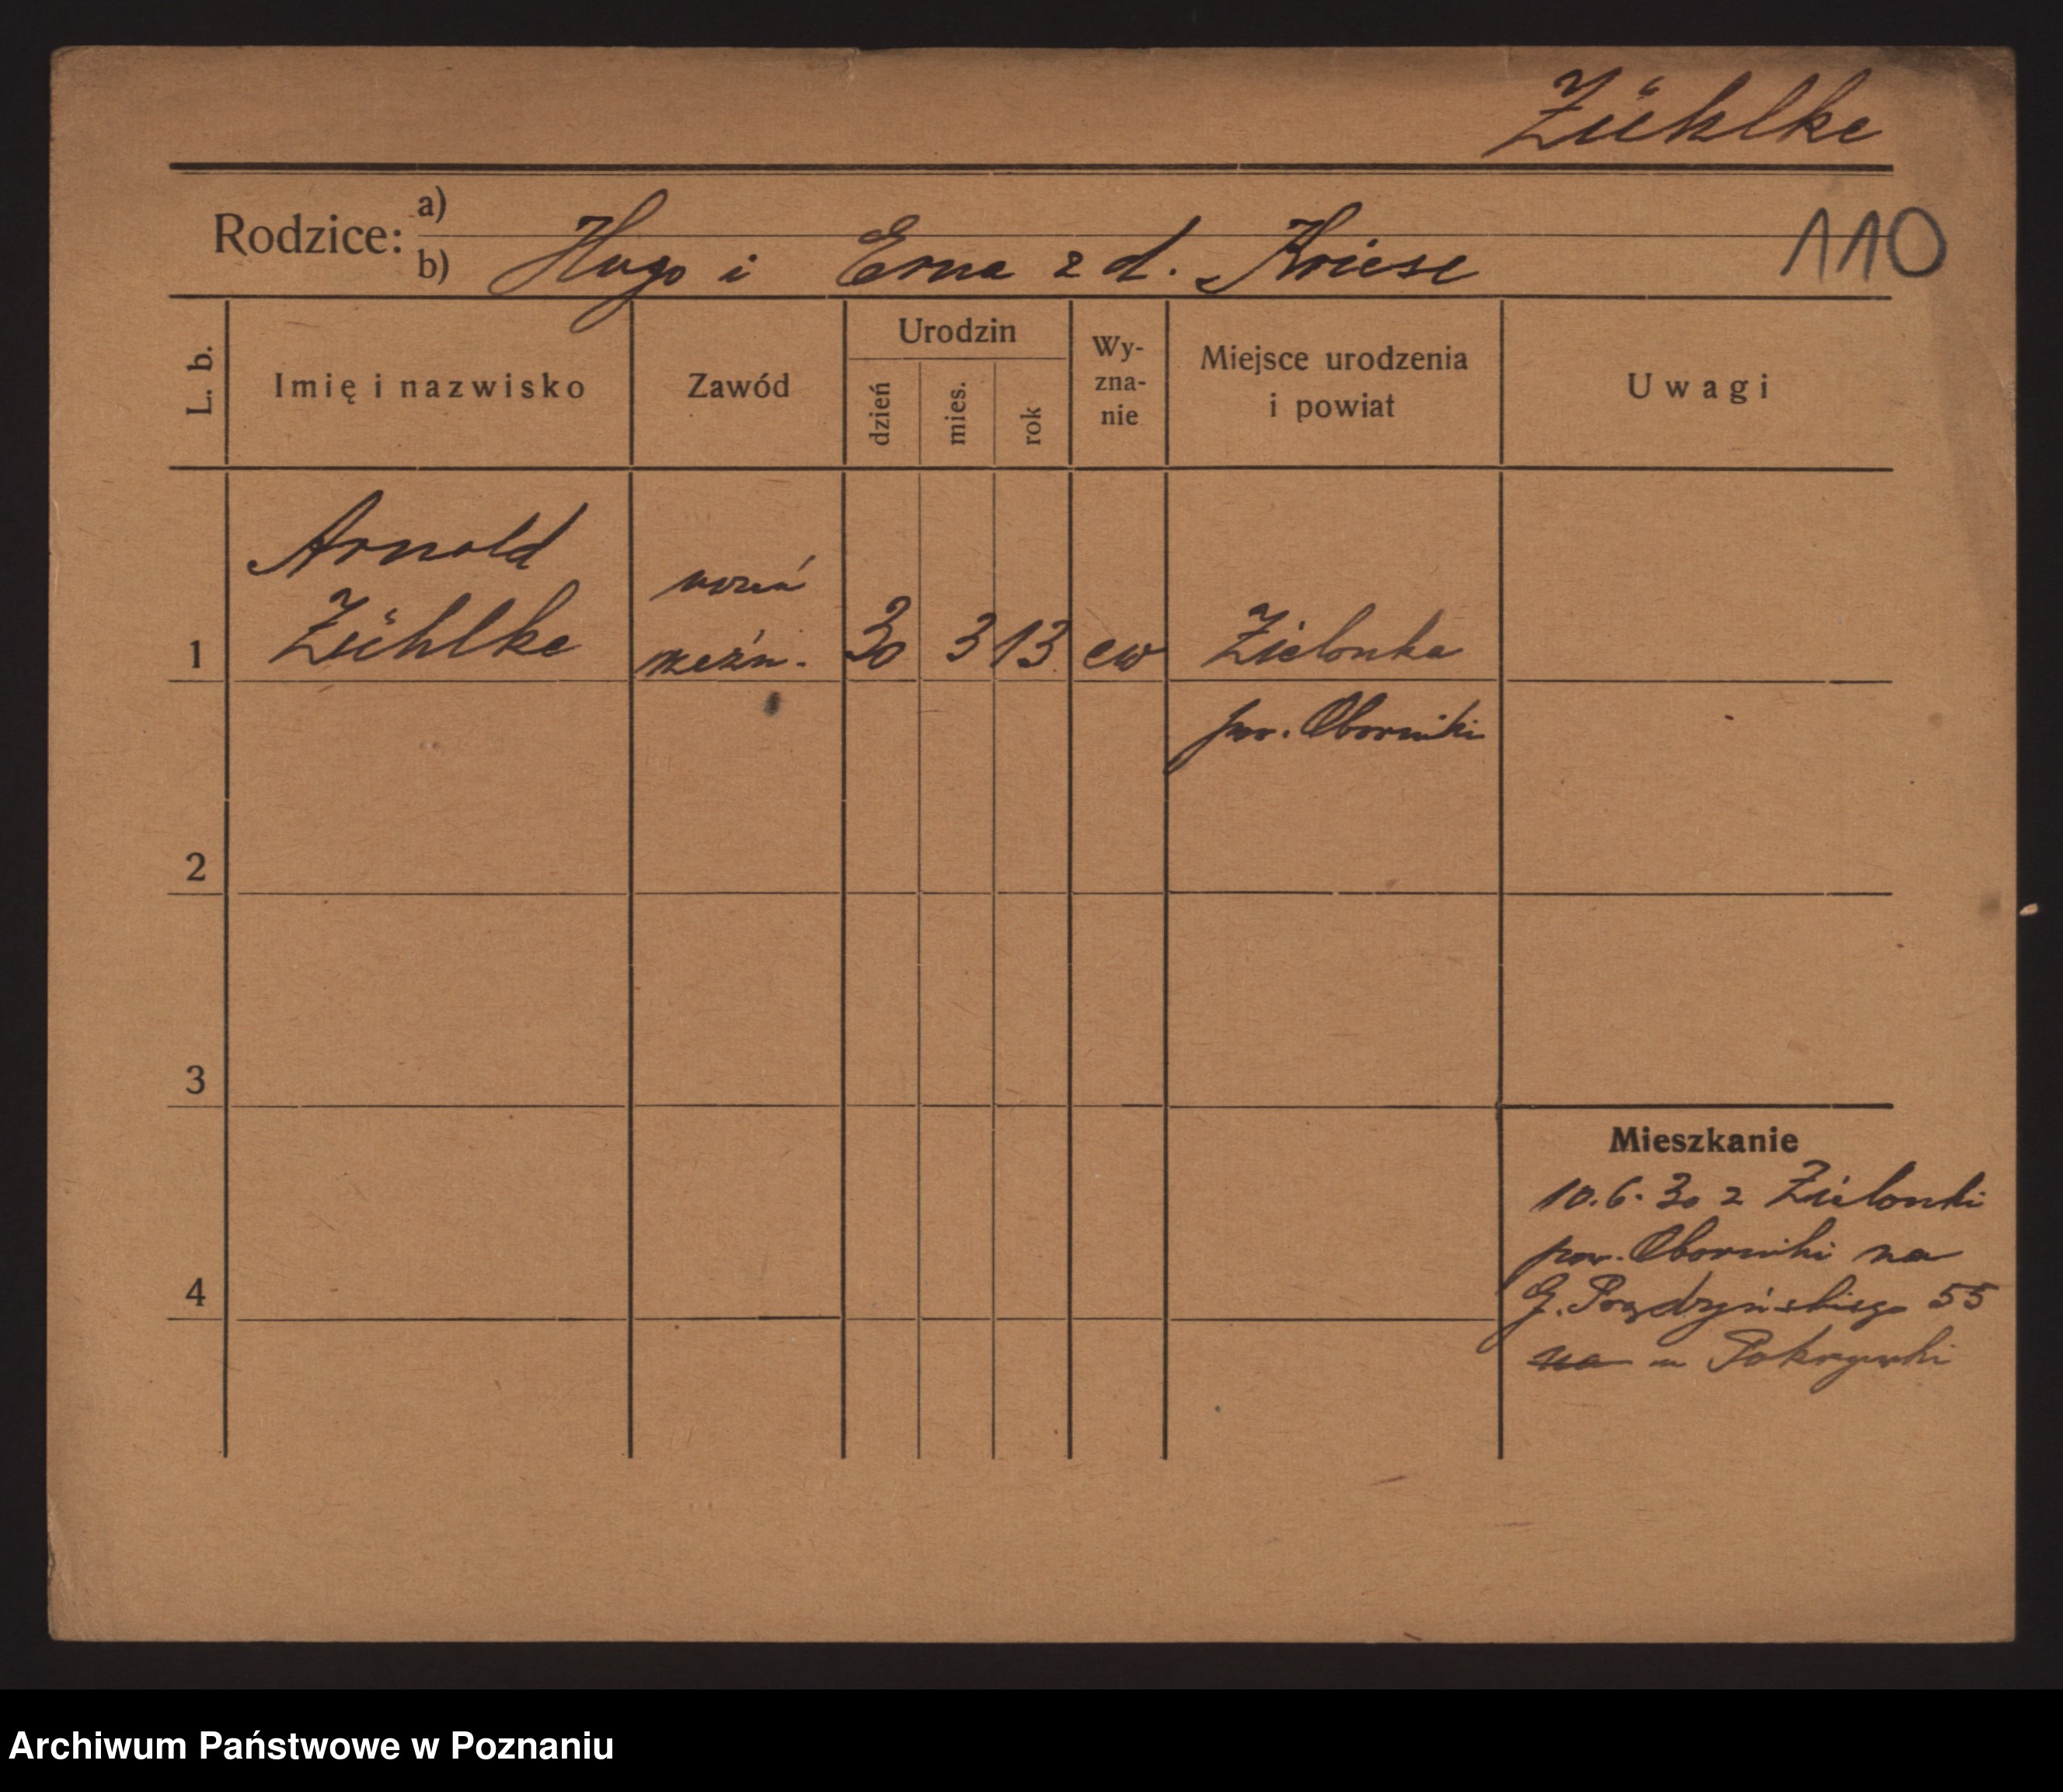 Zühlke
Rodzice: a)
b) Hugo i Erna z d. Kriese
110
L. b.
Imię i nazwisko
Zawód
Urodzin
dzień
mies.
rok
Wy-
zna-
nie
Miejsce urodzenia
i powiat
Uwagi
Arnold
uczeń
1 Zühlke rzeźn. 30 3 13 ew Zielonka
pow. Oborniki
2
3
4
Mieszkanie
10.6.30 z Zielonki
pow. Oborniki na
G. Prądzyńskiego 55
na u Pokrywki
Archiwum Państwowe w Poznaniu